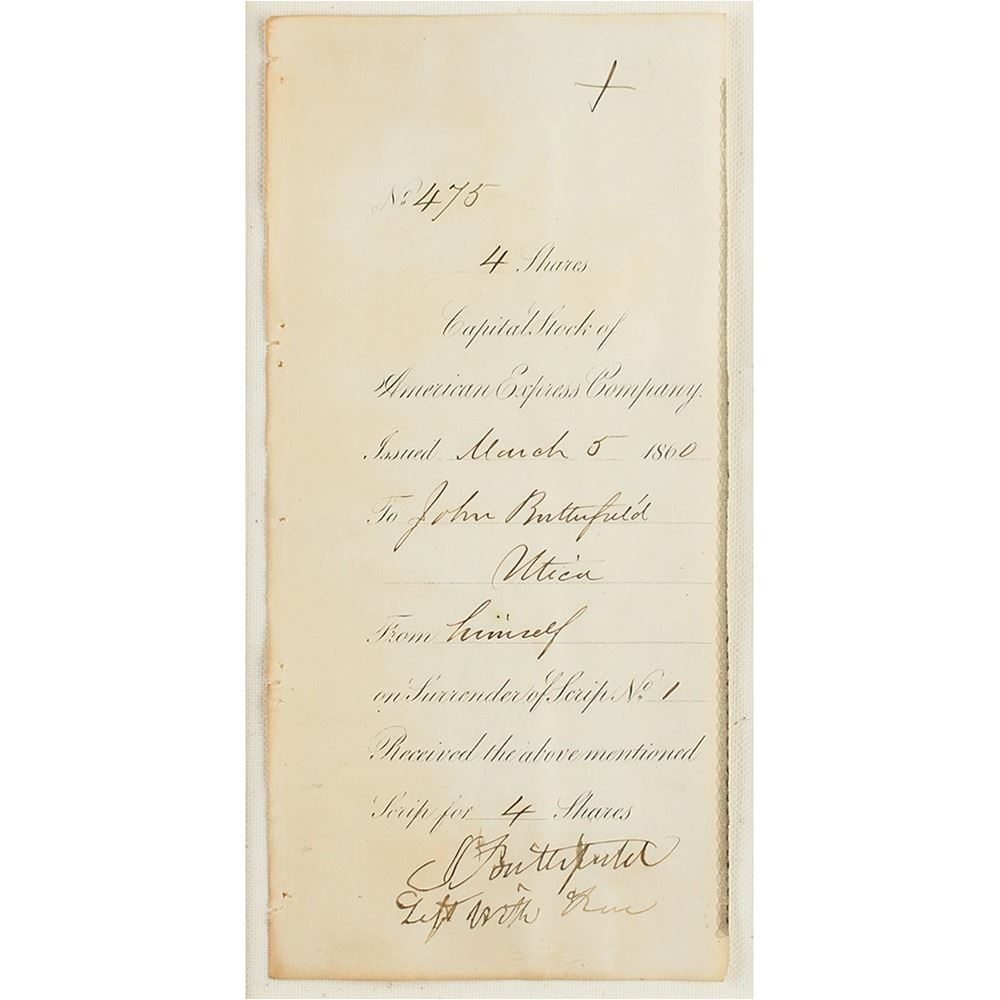 No 475
4 Shares
Capital Stock of
American Express Company.
Issued March 5 1860
To John Butterfield
Utica
From himself
on Surrender of Scrip No 1
Received the above mentioned
Scrip for 4 Shares
J Butterfield
Left with